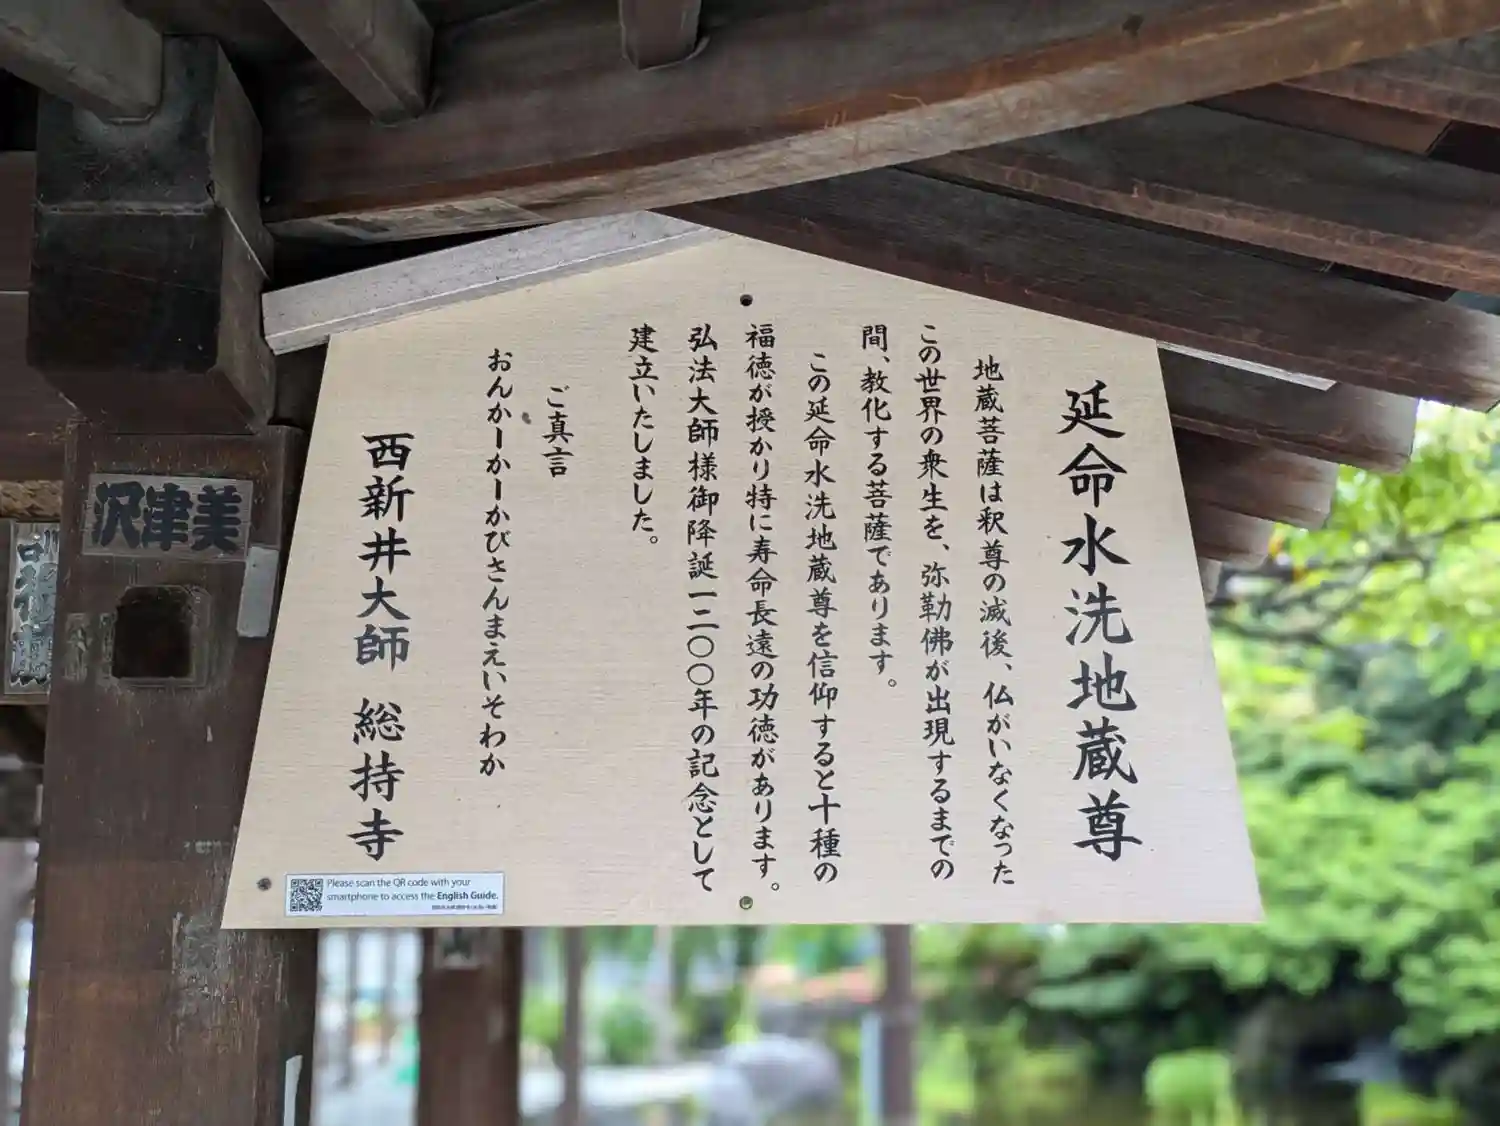 延命水洗地蔵尊
地蔵菩薩は釈尊の滅後、仏がいなくなった
この世界の衆生を、弥勒佛が出現するまでの
間、教化する菩薩であります。
この延命水洗地蔵尊を信仰すると十種の
福徳が授かり特に寿命長遠の功徳があります。
弘法大師様御降誕一二〇〇年の記念として
建立いたしました。
ご真言
おんかーかーかびさんまえいそわか
西新井大師 総持寺
Please scan the QR code with your
smartphone to access the English Guide.
沢津美